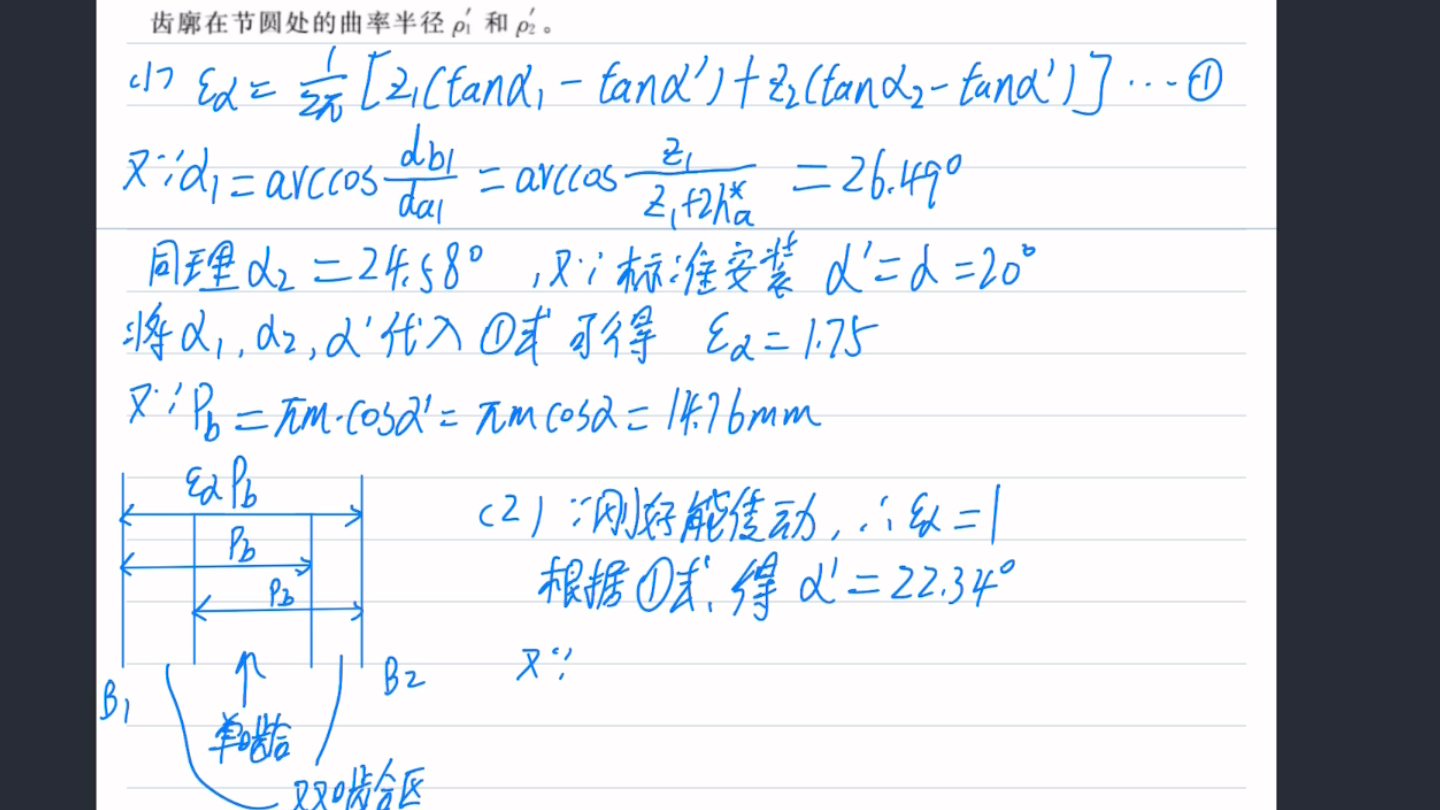 齿廓在节圆处的曲率半径 ρ₁′ 和 ρ₂′。
(1) εα = 1/2π [z₁(tanα₁ - tanα′) + z₂(tanα₂ - tanα′)] … ①
又∵α₁ = arccos db1/da1 = arccos z₁/z₁+2ha* = 26.49°
同理 α₂ = 24.58° ,又∵标准安装 α′ = α = 20°
将 α₁, α₂, α′ 代入 ①式 可得 εα = 1.75
又∵Pb = πm·cosα′ = πm cosα = 14.76mm
εα Pb
Pb
Pb
B1
B2
单啮合
双啮合区
(2) ∵刚好能传动, ∴εα = 1
根据①式, 得 α′ = 22.34°
又∵